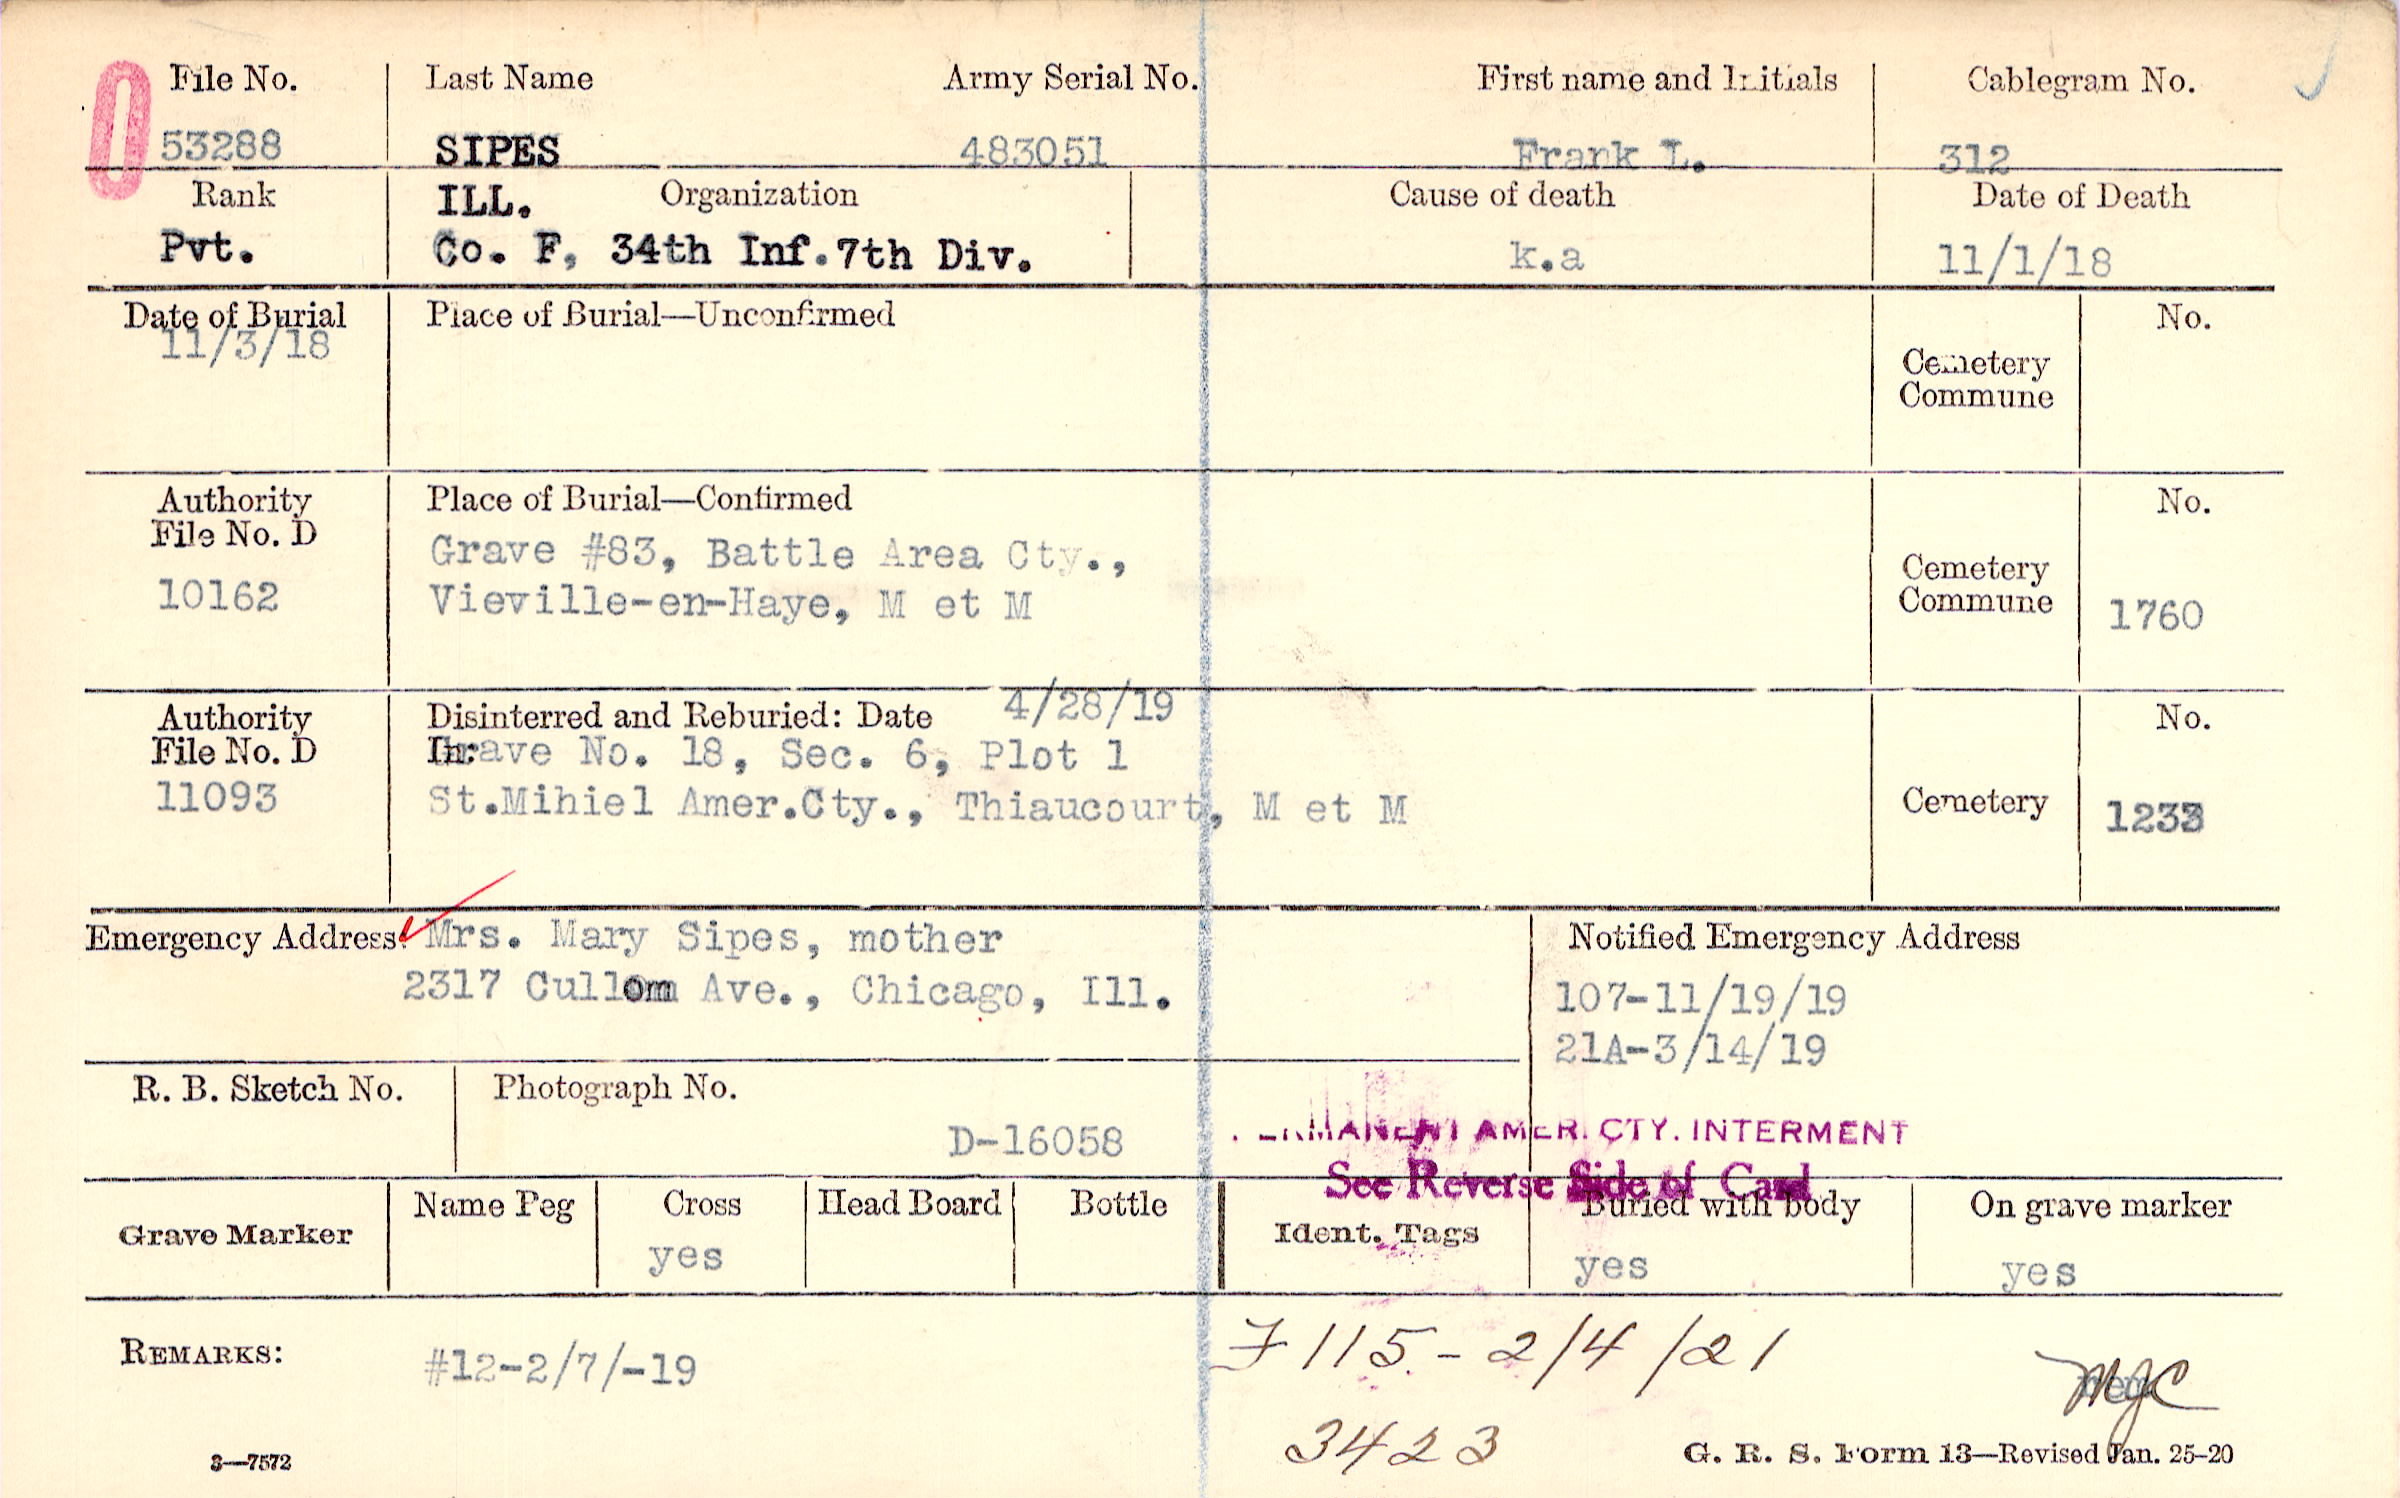 File No. Last Name Army Serial No. First name and Initials Cablegram No.
53288 SIPES 483051 Frank L. 312
Rank ILL. Organization Cause of death Date of Death
Pvt. Co. F, 34th Inf.7th Div. k.a 11/1/18
Date of Burial Place of Burial—Unconfirmed No.
11/3/18
Cemetery
Commune
Authority Place of Burial—Confirmed No.
File No. D
Grave #83, Battle Area Cty.,
10162 Vieville-en-Haye, M et M
Cemetery
Commune 1760
Authority Disinterred and Reburied: Date 4/28/19 No.
File No. D In: Grave No. 18, Sec. 6, Plot 1
11093 St.Mihiel Amer.Cty., Thiaucourt, M et M Cemetery 1233
Emergency Address: Mrs. Mary Sipes, mother Notified Emergency Address
2317 Cullom Ave., Chicago, Ill. 107-11/19/19
21A-3/14/19
R. B. Sketch No. Photograph No.
D-16058
PERMANENT AMER. CTY. INTERMENT
See Reverse Side of Card
Grave Marker Name Peg Cross Head Board Bottle Ident. Tags Buried with body On grave marker
yes yes yes
REMARKS: #12-2/7/-19 F 115 - 2/4/21
MJC
3423
3—7572 G. R. S. Form 13—Revised Jan. 25-20